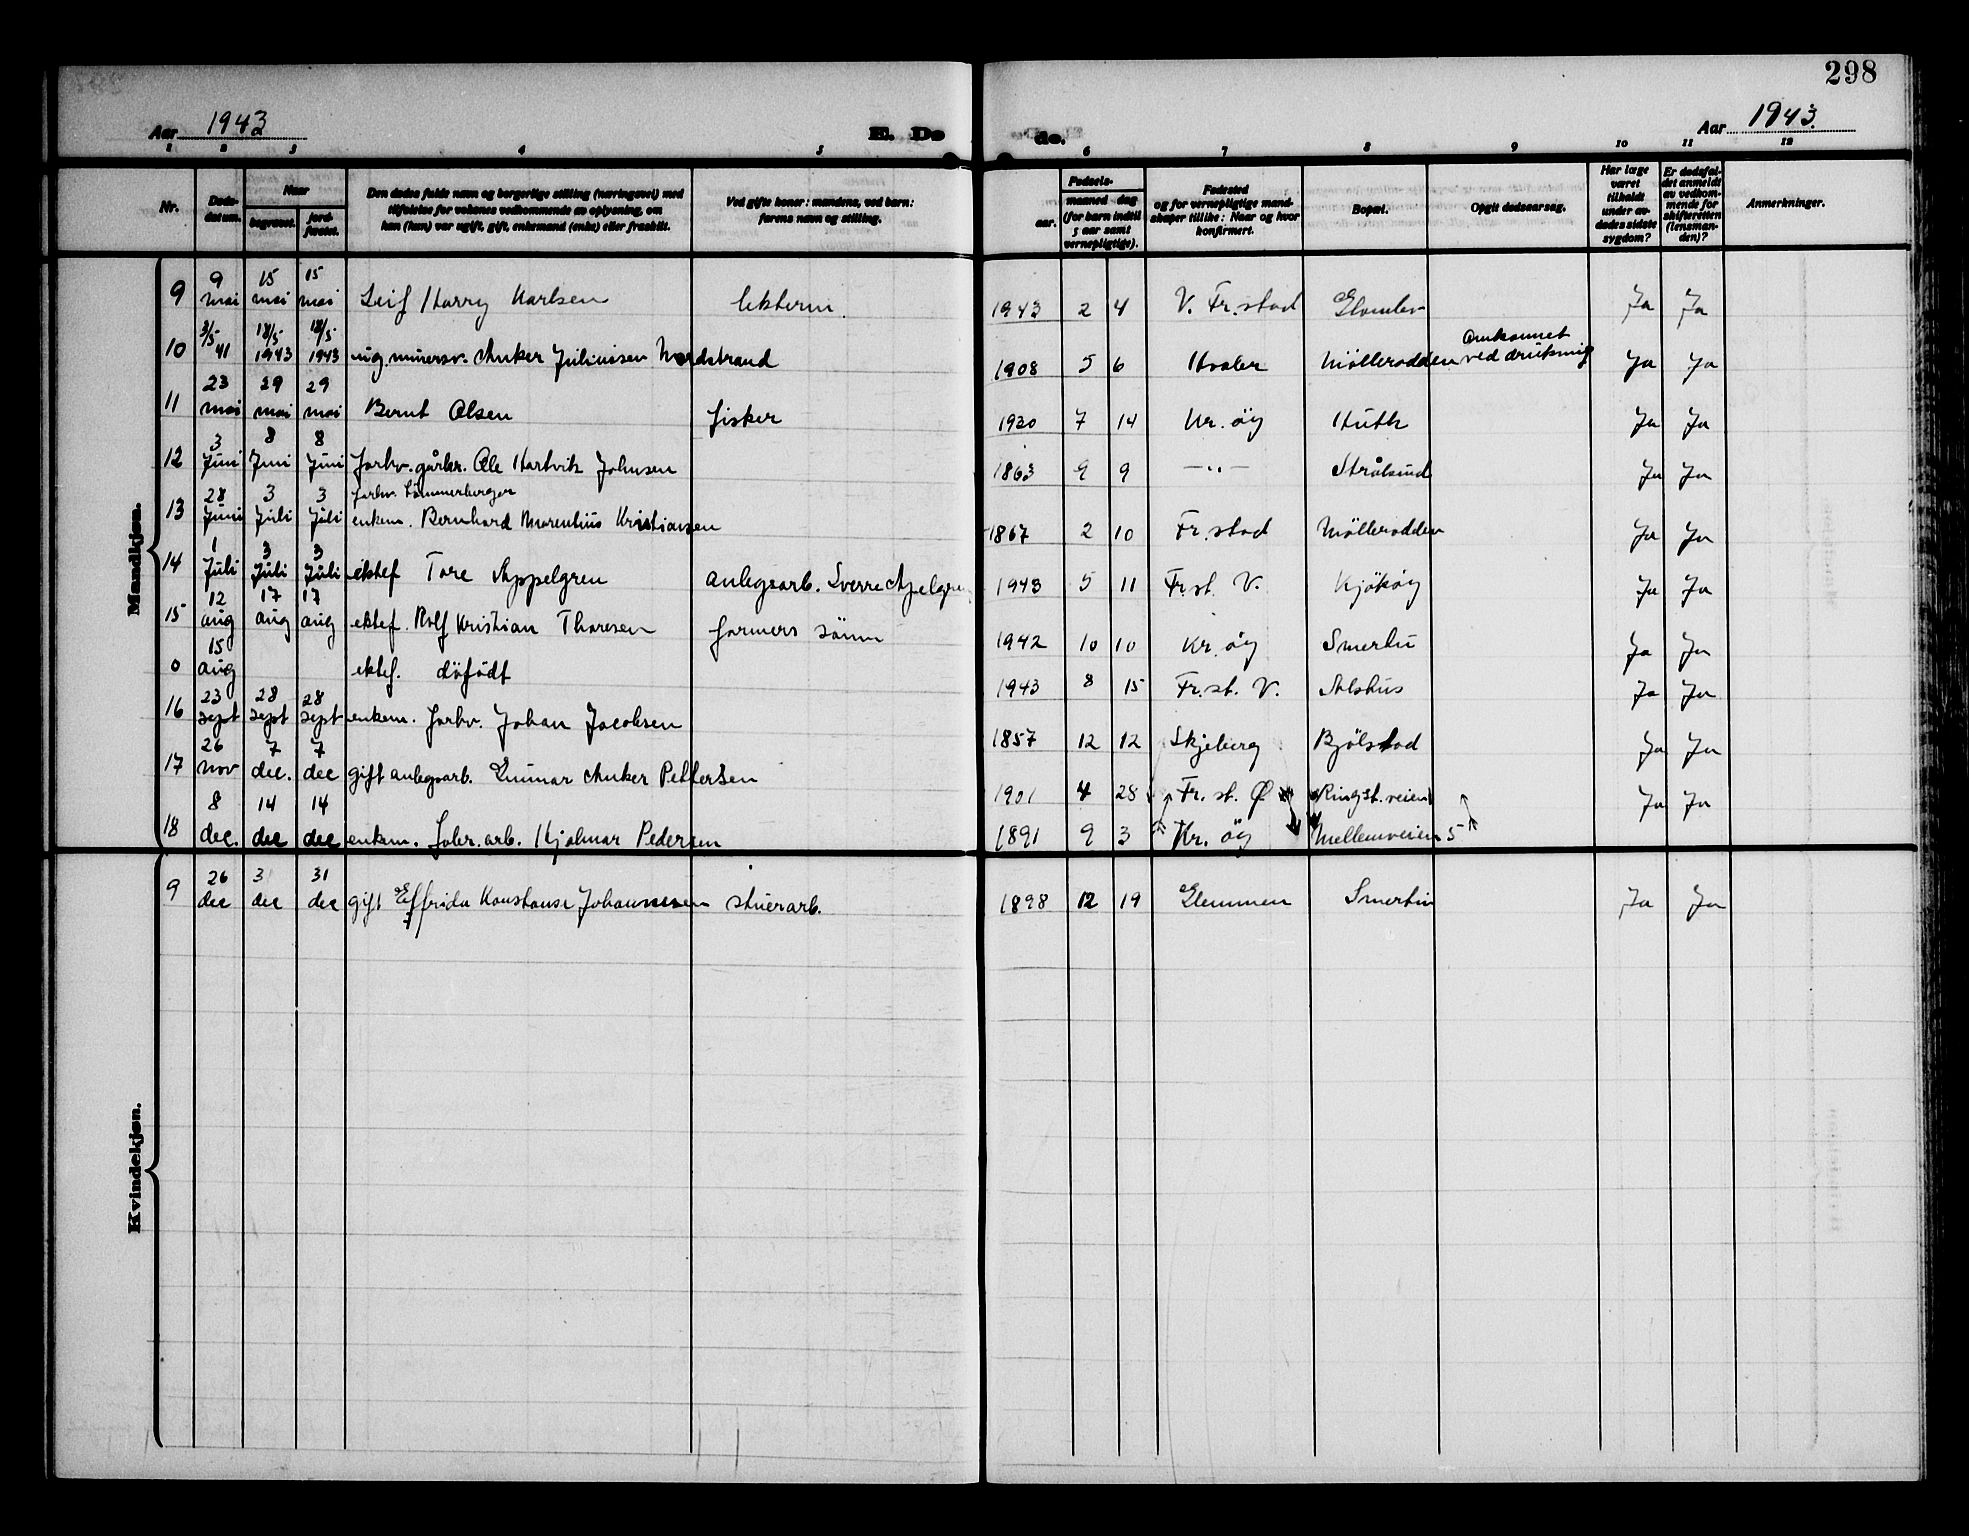 298
Aar 1943
E. Dø
de.
Aar 1943.
1 2 3 4 5 6 7 8 9 10 11 12
Nr.
Døds-
datum.
Naar
begravet.
jord-
fæstet.
Den dødes fulde navn og borgerlige stilling (næringsvei) med
tilføielse for voksnes vedkommende av oplysning, om
han (hun) var ugift, gift, enkemand (enke) eller fraskilt.
Ved gifte koner: mandens, ved barn:
farens navn og stilling.
Fødsels-
aar.
maaned dag
(for barn indtil
5 aar samt
vernepligtige).
Fødested
og for vernepligtige mand-
skaper tillike: Naar og hvor
konfirmert.
Bopæl.
Opgit dødsaarsag.
Har læge
været
tilkaldt
under av-
dødes sidste
sygdom?
Er dødsfal-
det anmeldt
av vedkom-
mende for
skifteretten
(lensman-
den)?
Anmerkninger.
Mandkjøn.
9 9 mai 15 mai 15 mai Leif Harry Karlsen 1943 2 4 V. Fr.stad Ja Ja
10 3/5 41 18/5 1943 18/5 1943 ug. Anker Juliussen Nordstrand 1908 5 6 Hvaler Møllerodden Omkommet
ved Ja Ja
11 23 mai 29 mai 29 mai Bernt Olsen fisker 1920 7 14 Kr. øy Huth Ja Ja
12 3 Juni 8 Juni 8 Juni forhv. gårbr. Ole Hartvik Johnsen 1863 9 9 —"— Strålsund Ja Ja
13 28 Juni 3 Juli 3 Juli forhv. Tømmerborger
enkem. Bernhard Marenthius Kristiansen 1867 2 10 Fr.stad Møllerodden Ja Ja
14 1 Juli 3 Juli 3 Juli ektef Tore Appelgren anlegsarb. Sverre Apelgren 1943 5 11 Fr.st. V. Kjøkøy Ja Ja
15 12 aug 17 aug 17 aug ektef. Rolf Kristian Thoresen formers sønn 1942 10 10 Kr. øy Ja Ja
0 15 aug ektef. døfødt 1943 8 15 Fr.st. V. Alshus Ja Ja
16 23 sept 28 sept 28 sept enkem. forhv. Johan Jacobsen 1857 12 12 Skjeberg Bjølstad Ja Ja
17 26 nov 7 dec. 7 dec gift anlegsarb. Gunnar Anker Pettersen 1901 4 28 Fr. st. Ø Ringst.veien Ja Ja
18 8 dec. 14 dec 14 dec enkem. arb. Hjalmar Pedersen 1891 9 3 Kr. øy Mellemveien 5
Kvindekjøn.
9 26 dec 31 dec 31 dec gift Elfrida Konstanse Johannesen stuerarb. 1898 12 19 Glemmen Ja Ja